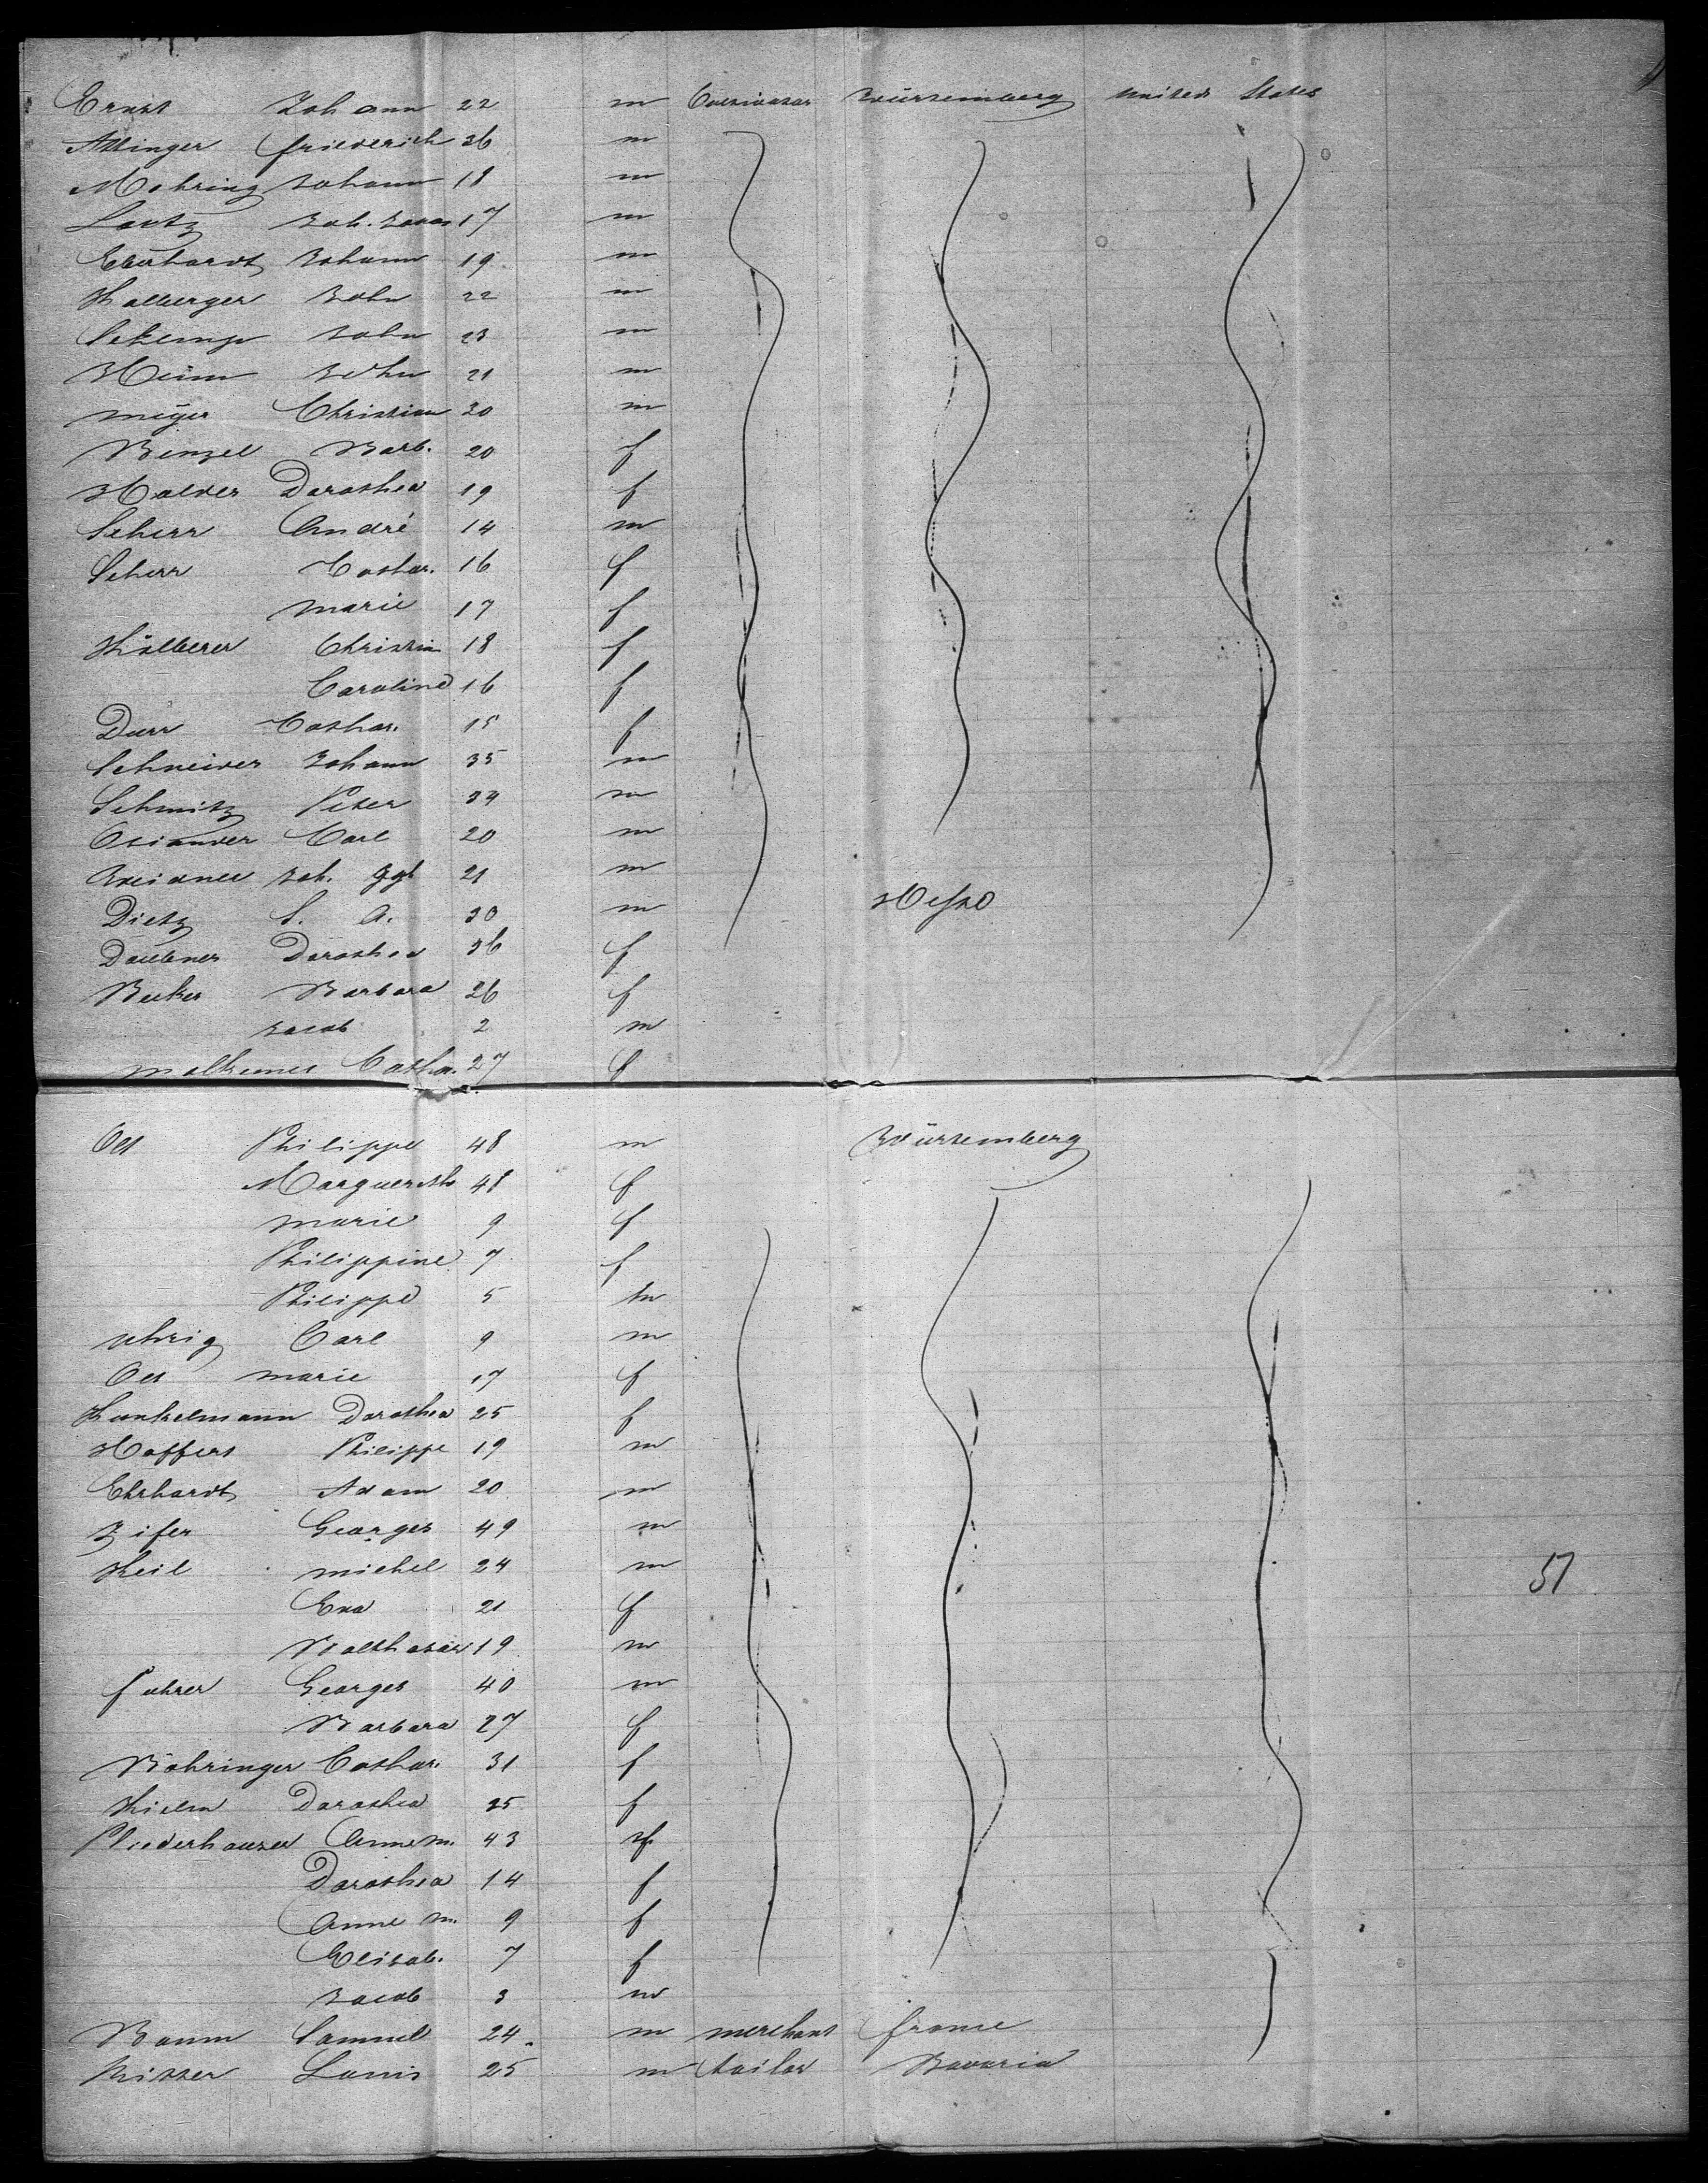 Ernst Johann 22 m Cultivator Württemberg United States
Friederich 36 m
Mohring Johann 18 m
Lautz Joh. 17 m
Eberhardt Johann 19 m
Kalberger John 22 m
Schemp John 23 m
Heim John 21 m
Meyer Christian 20 m
Benzel Barb. 20 f
Halder Dorothea 19 f
Scherr André 14 m
Scherr Cathar. 16 f
Marie 17 f
Kölberer Christin 18 f
Caroline 16 f
Durr Cathar. 15 f
Schneider Johann 35 m
Schmitz Peter 34 m
Osiander Carl 20 m
Weidner Joh. Ggl 21 m
Dietz S. A. 30 m Hesse
Daubner Dorothea 36 f
Becker Barbara 26 f
Jacob 2 m
Cathar. 27 f
Oes Philippe 48 m Württemberg
Marguerith 48 f
Marie 9 f
Philippine 7 f
Philippe 5 m
Uhrig Carl 9 m
Oes Marie 17 f
Kunkelmann Dorothea 25 f
Hoffert Philippe 19 m
Ehrhardt Adam 20 m
Zifer Georges 49 m
Keil Michel 24 m
Eva 21 f
Balthasar 19 m
Fuhrer Georges 40 m
Barbara 27 f
Böhringer Cathar. 31 f
Dorothea 25 f
Niederhauser Anne M. 43 f
Dorothea 14 f
Anne M. 9 f
Elisab. 7 f
Jacob 3 m
Baum Samuel 24 m merchant France
Risser Louis 25 m tailor Bavaria
51